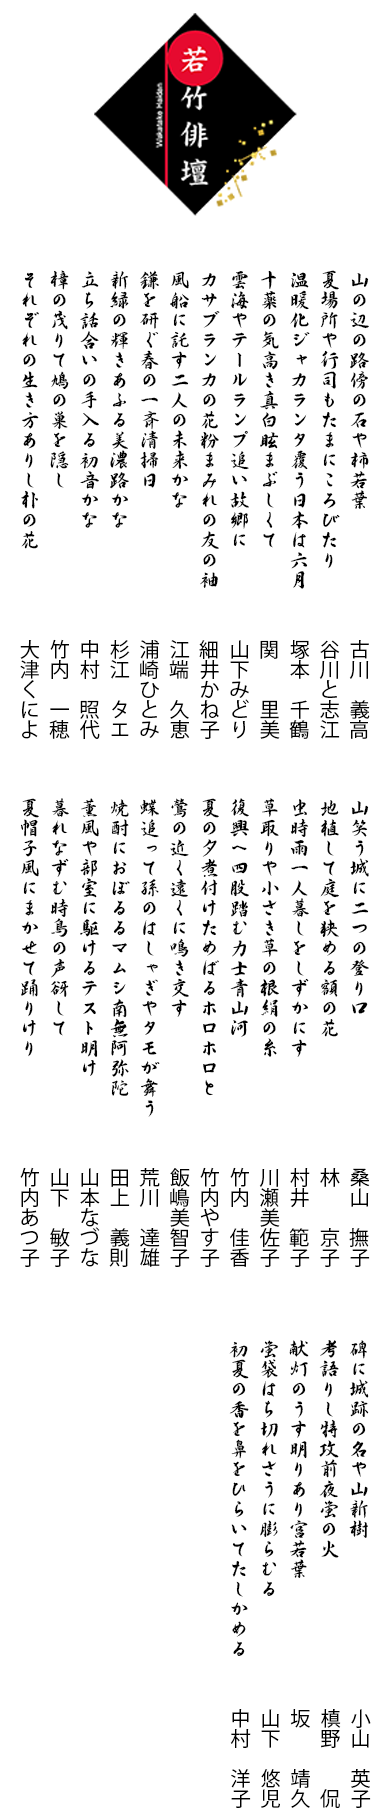 若竹俳壇
Wakatake Haidan
山の辺の路傍の石や柿若葉
古川　義高
夏場所や行司もたまにころびたり
谷川と志江
温暖化ジャカランタ覆う日本は六月
塚本　千鶴
十薬の気高き真白眩まぶしくて
関　　里美
雲海やテールランプ追い故郷に
山下みどり
カサブランカの花粉まみれの友の袖
細井かね子
風船に託す二人の未来かな
江端　久恵
鎌を研ぐ春の一斉清掃日
浦崎ひとみ
新緑の輝きあふる美濃路かな
杉江　タエ
立ち話合いの手入る初音かな
中村　照代
樟の茂りて鳩の巣を隠し
竹内　一穂
それぞれの生き方ありし朴の花
大津くによ
山笑う城に二つの登り口
桑山　撫子
地植して庭を狭める額の花
林　　京子
虫時雨一人暮しをしずかにす
村井　範子
草取りや小さき草の根絹の糸
川瀬美佐子
復興へ四股踏む力士青山河
竹内　佳香
夏の夕煮付けためばるホロホロと
竹内やす子
鶯の近く遠くに鳴き交す
飯嶋美智子
蝶追って孫のはしゃぎやタモが舞う
荒川　達雄
焼酎におぼるるマムシ南無阿弥陀
田上　義則
薫風や部室に駆けるテスト明け
山本なづな
暮れなずむ時鳥の声谺して
山下　敏子
夏帽子風にまかせて踊りけり
竹内あつ子
碑に城跡の名や山新樹
小山　英子
考語りし特攻前夜蛍の火
槙野　　侃
献灯のうす明りあり宮若葉
坂　　靖久
蛍袋はち切れさうに膨らむる
山下　悠児
初夏の香を鼻をひらいてたしかめる
中村　洋子